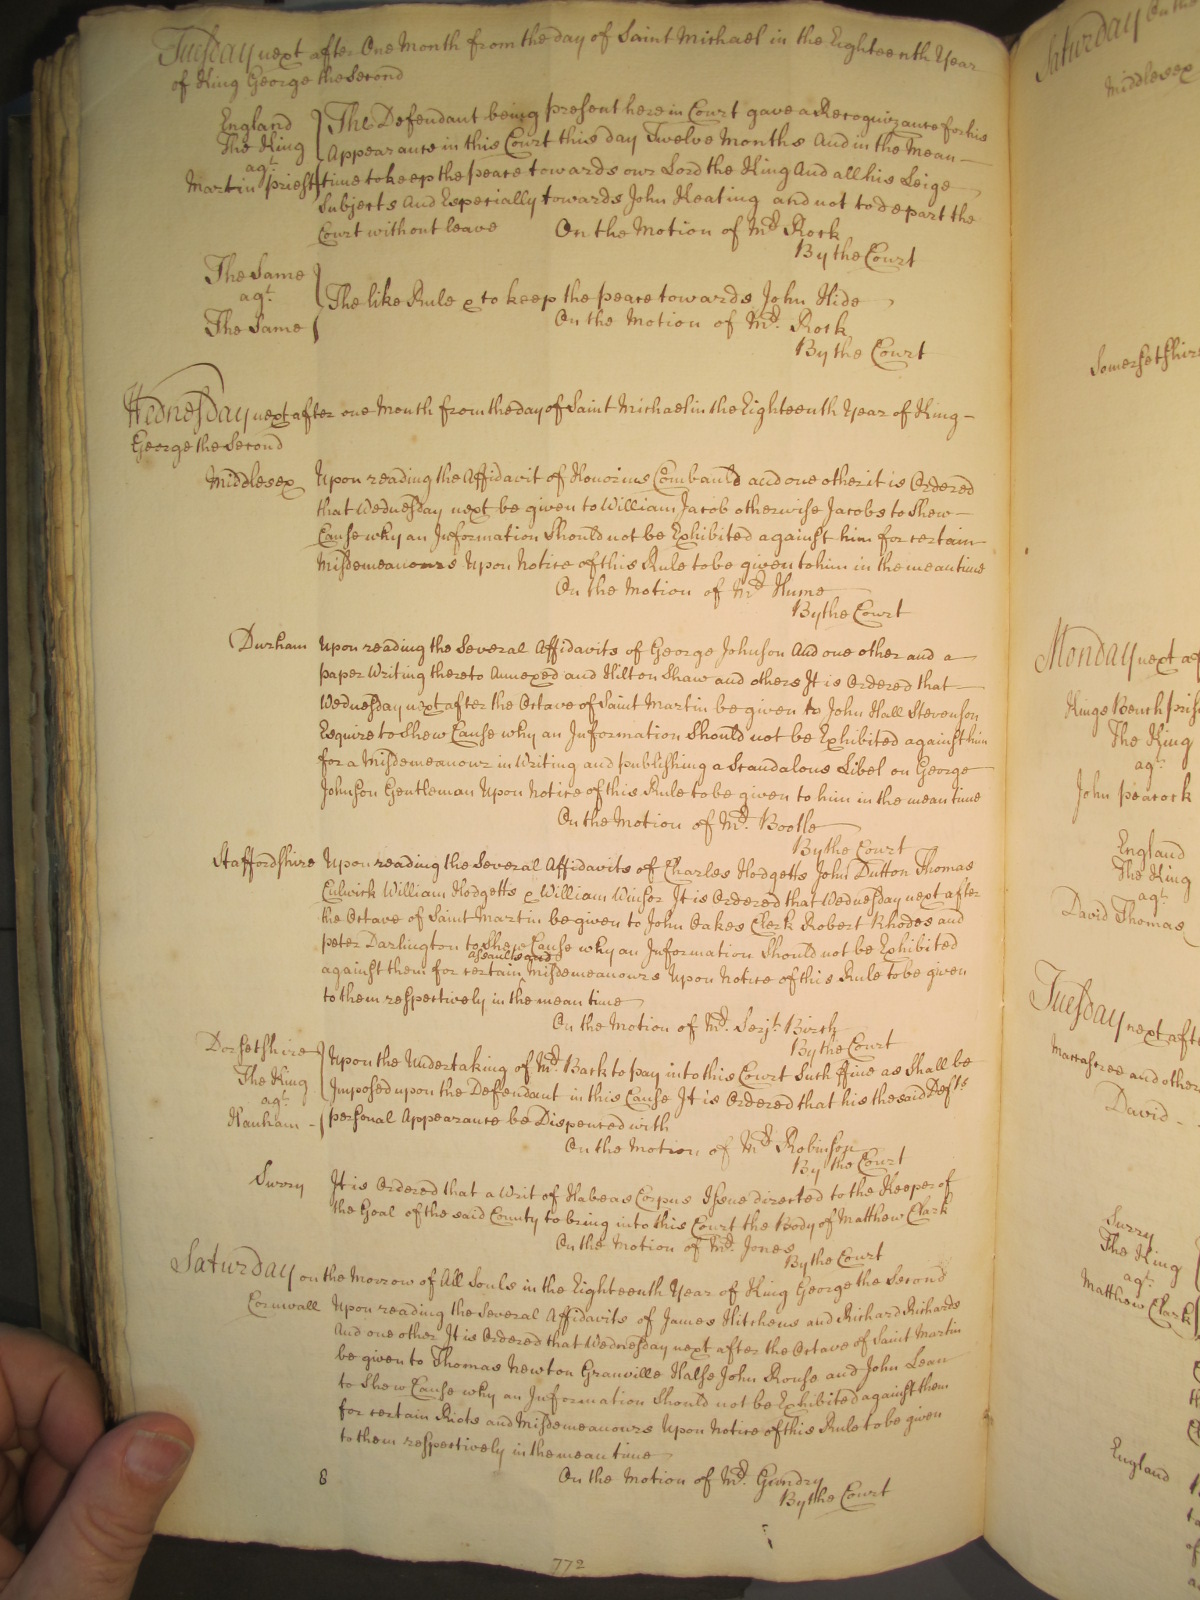 Tuesday next after One Month from the day of Saint Michael in the Eighteenth Year
of King George the Second
England
The King
agt.
Martin Priest
The Defendant being present here in Court gave a Recognizance for his
Appearance in this Court this day Twelve Months And in the Mean
time to keep the peace towards our Lord the King And all his Leige
Subjects And Especially towards John Keating and not to depart the
Court without leave On the Motion of Mr. Rock
By the Court
The Same
agt.
The Same
The like Rule & to keep the peace towards John Hide
On the Motion of Mr. Rock
By the Court
Wednesday next after one Month from the day of Saint Michael in the Eighteenth Year of King
George the Second
Middlesex Upon reading the Affidavit of Honorius Combauld and one other it is Ordered
that Wednesday next be given to William Jacob otherwise Jacobs to Shew
Cause why an Information Should not be Exhibited against him for certain
Misdemeanours Upon Notice of this Rule to be given to him in the mean time
On the Motion of Mr. Hume
By the Court
Durham Upon reading the Several Affidavits of George Johnson And one other and a
paper Writing thereto Annexed and Hilton Shaw and others It is Ordered that
Wednesday next after the Octave of Saint Martin be given to John Hall Stevenson
Esquire to Shew Cause why an Information Should not be Exhibited against him
for a Misdemeanour in Writing and publishing a Scandalous Libel on George
Johnson Gentleman Upon Notice of this Rule to be given to him in the mean time
On the Motion of Mr. Bootle
By the Court
Staffordshire Upon reading the Several Affidavits of Charles Hodgetts John Dutton Thomas
Culwick William Hodgetts & William Winsor It is Ordered that Wednesday next after
the Octave of Saint Martin be given to John Oakes Clerk Robert Rhodes and
Peter Darlington to Shew Cause why an Information Should not be Exhibited
assaults and
against them for certain Misdemeanours Upon Notice of this Rule to be given
to them respectively in the mean time
On the Motion of Mr. Serjt. Birch
By the Court
Dorsetshire
The King
agt.
Hanham
Upon the Undertaking of Mr. Back to pay into this Court Such ffine as Shall be
Imposed upon the Defendant in this Cause It is Ordered that his the said Defts
personal Appearance be Dispenced with
On the Motion of Mr. Robinson
By the Court
Surry It is Ordered that a Writ of Habeas Corpus Issue directed to the Keeper of
the Goal of the said County to bring into this Court the Body of Matthew Clark
On the Motion of Mr. Jones
By the Court
Saturday on the Morrow of All Souls in the Eighteenth Year of King George the Second
Cornwall Upon reading the Several Affidavits of James Hitchens and Richard Richards
And one other It is Ordered that Wednesday next after the Octave of Saint Martin
be given to Thomas Newton Granville Halse John Rouse and John Lean
to Shew Cause why an Information Should not be Exhibited against them
for certain Riots and Misdemeanours Upon Notice of this Rule to be given
to them respectively in the mean time
8 On the Motion of Mr. Gundry
By the Court
772
Saturday On the
Middlesex
Somersetshire
Monday next
Kings Bench
The King
agt.
John Peacock
England
The King
agt.
David Thomas
Tuesday next
and other
David
Surry
The King
agt.
Matthew Clark
England